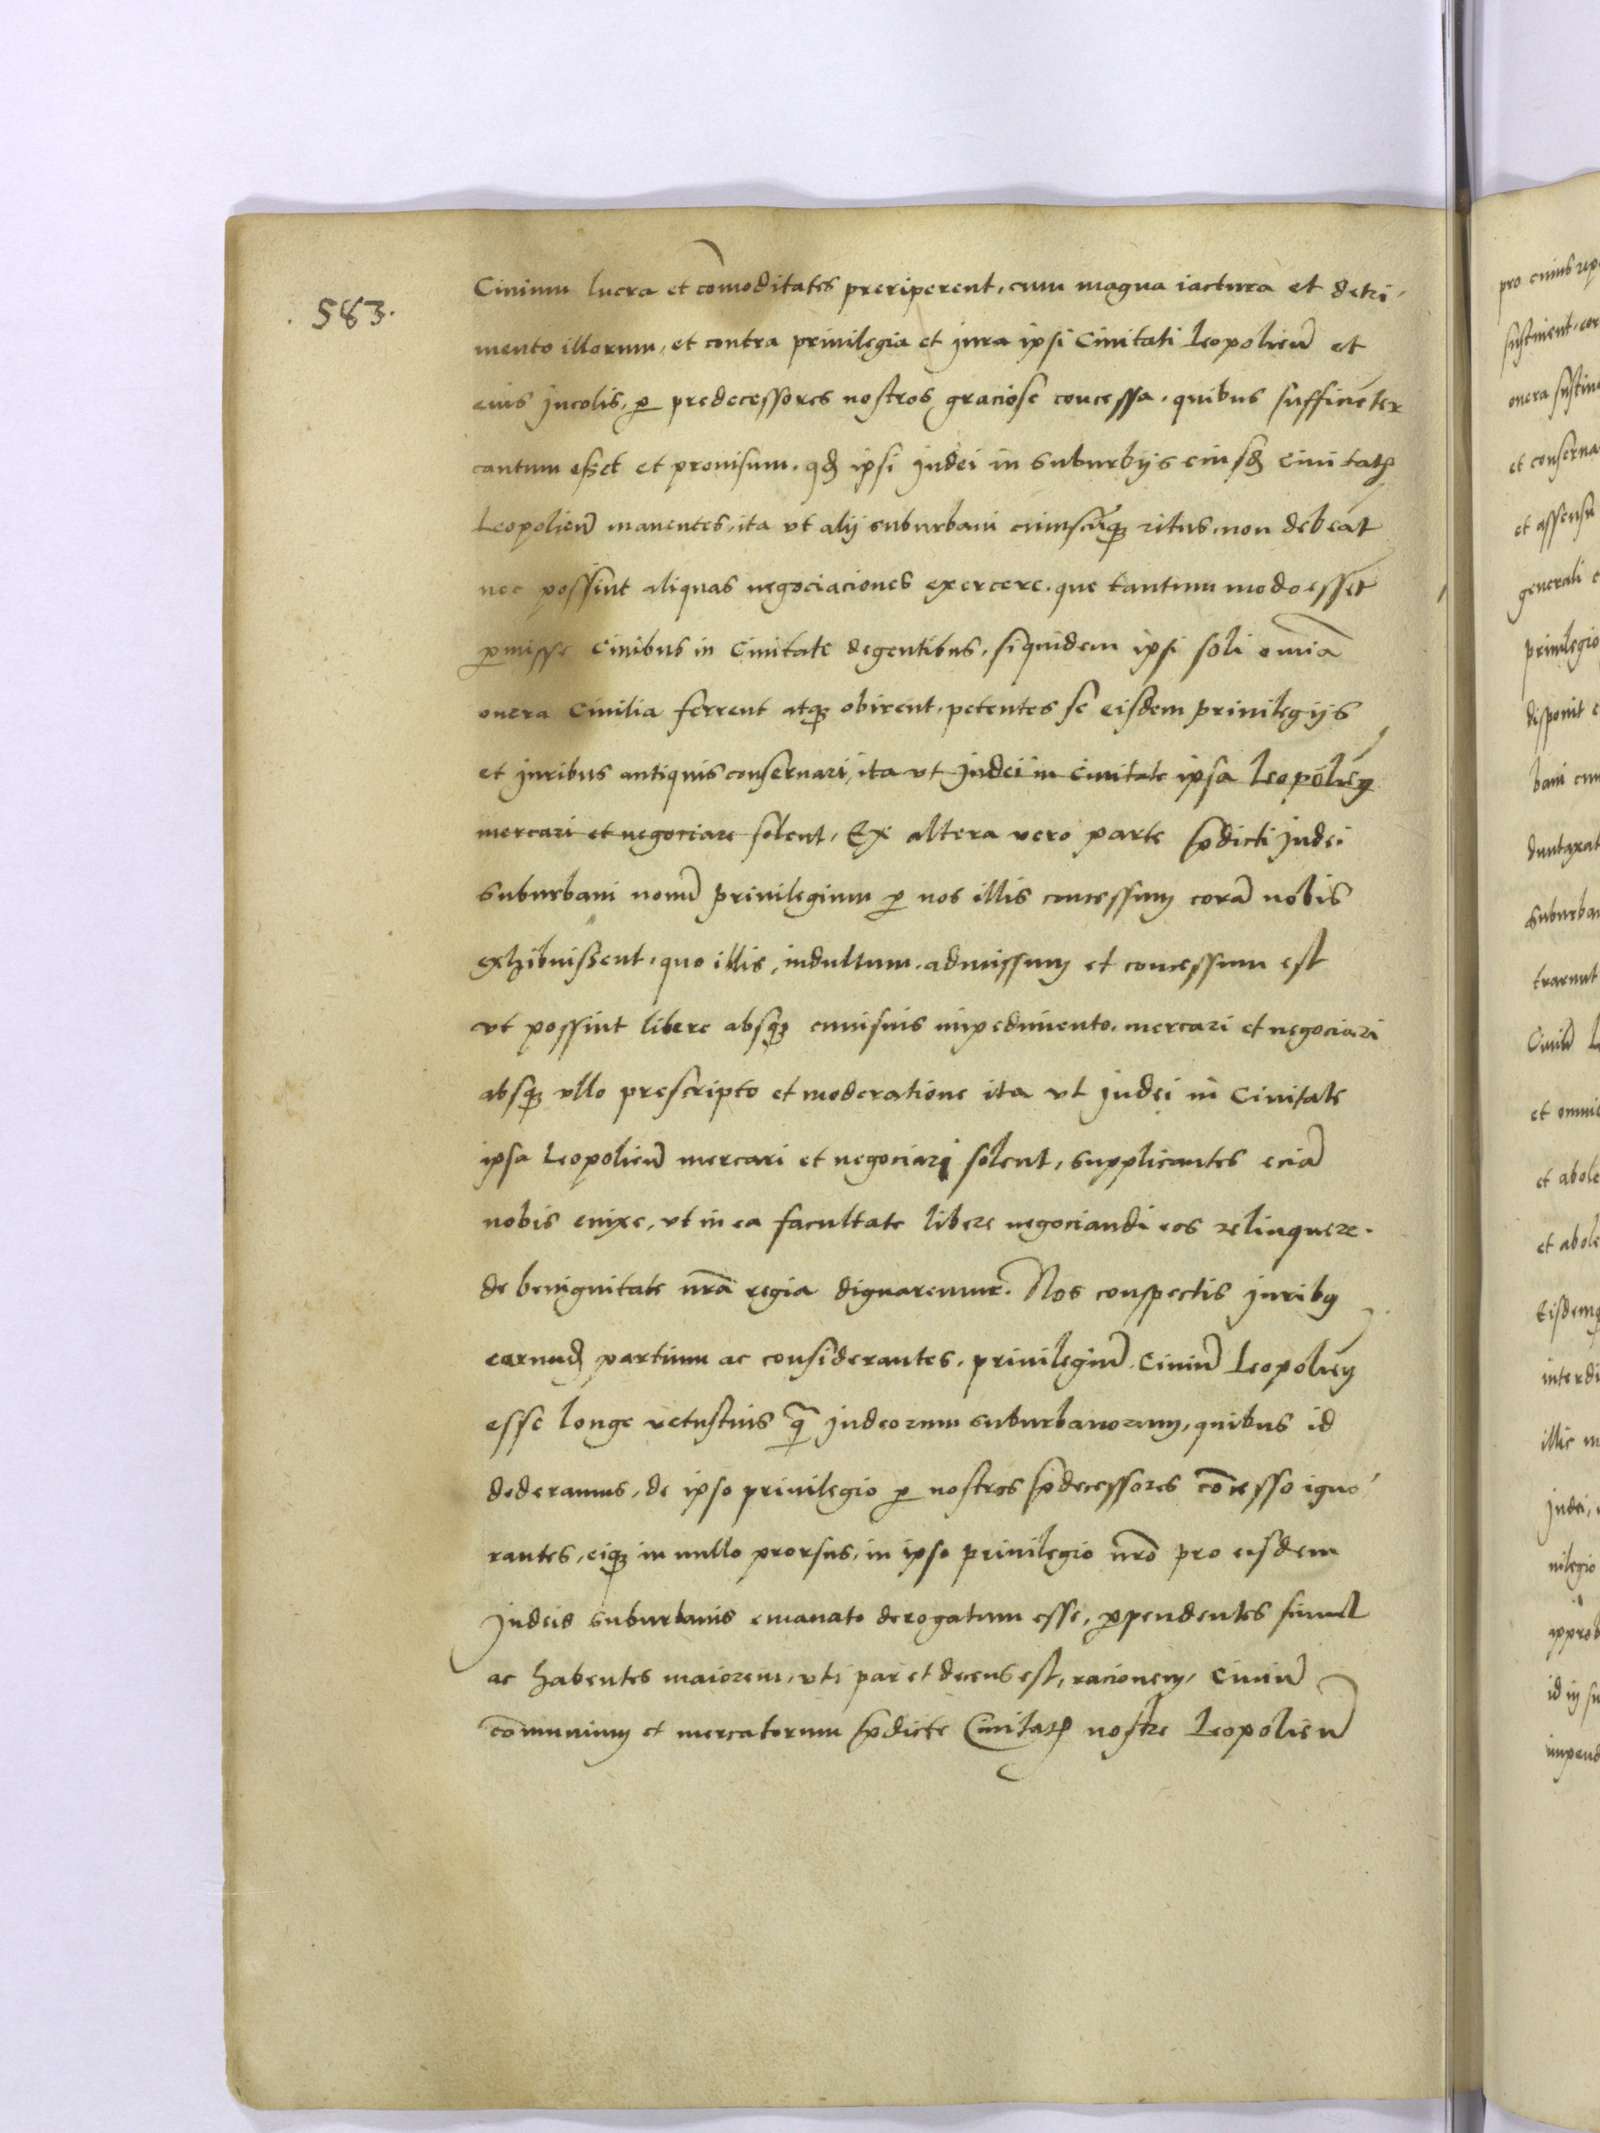 . 583 .
Ciuium lucra et com̄oditates preriperent, cum magna iactura et detri-
mento illorum, et contra priuilegia et jura ipsi Ciuitati Leopolien̄ et
eius jncolis, ꝑ predecessores nostros graciose concessa, quibus sufficienter
cantum esset et prouisum, qđ ipsi judei in suburbijs eiusđ Ciuitatꝭ
Leopolien̄ manentes, ita vt alij suburbani cuiuscūqꝫ ritus, non debeāt
nec possint aliquas negociaciones exercere, que tantummodo essēt
ꝑmisse Ciuibus in Ciuitate degentibus, siquidem ipsi soli om̄ia
onera Ciuilia ferrent atqꝫ obirent, petentes se eisdem priuilegijs
et juribus antiquis conseruari, ita vt judei in ciuitate ipsa Leopolien̄
mercari et negociare solent, Ex altera vero parte p̄dicti judei
suburbani nouū priuilegium ꝑ nos illis concessum corā nobis
exhibuissent, quo illis, indultum, admissum et concessum est
vt possint libere absqꝫ cuiusuis impedimento, mercari et negociari
absqꝫ vllo prescripto et moderatione ita vt judei in Ciuitate
ipsa Leopolien̄ mercari et negociari solent, supplicantes eciā
nobis enixe, vt in ea facultate libere negociandi eos relinquere.
de benignitate nr̄a regia dignaremur. Nos conspectis juribꝯ
earunđ partium ac considerantes, priuilegiū Ciuiū Leopolien̄
esse longe vetustius q̄ judeorum suburbanorum, quibus id
dederamus, de ipso priuilegio ꝑ nostros p̄decessores cōcesso igno-
rantes, eiqꝫ in nullo prorsus, in ipso priuilegio nr̄o pro eisdem
judeis suburbanis emanato derogatum esse, ꝑpendentes simul
ac habentes maiorem, vti par et decens est, racionem, Ciuiū
com̄unium et mercatorum p̄dicte Ciuitatꝭ nostre Leopolien̄
pro cuius rep
sustinent, cor
onera sustine
et conserua
et assensu
generali c
priuilegio
disponit e
bani cui
duntaxat
suburban
trarunt
Ciuiū L
et omnia
et abole
et abole
Eisdemqꝫ
interdi
illic m
judei,
uilegio
approb
id in su
impend